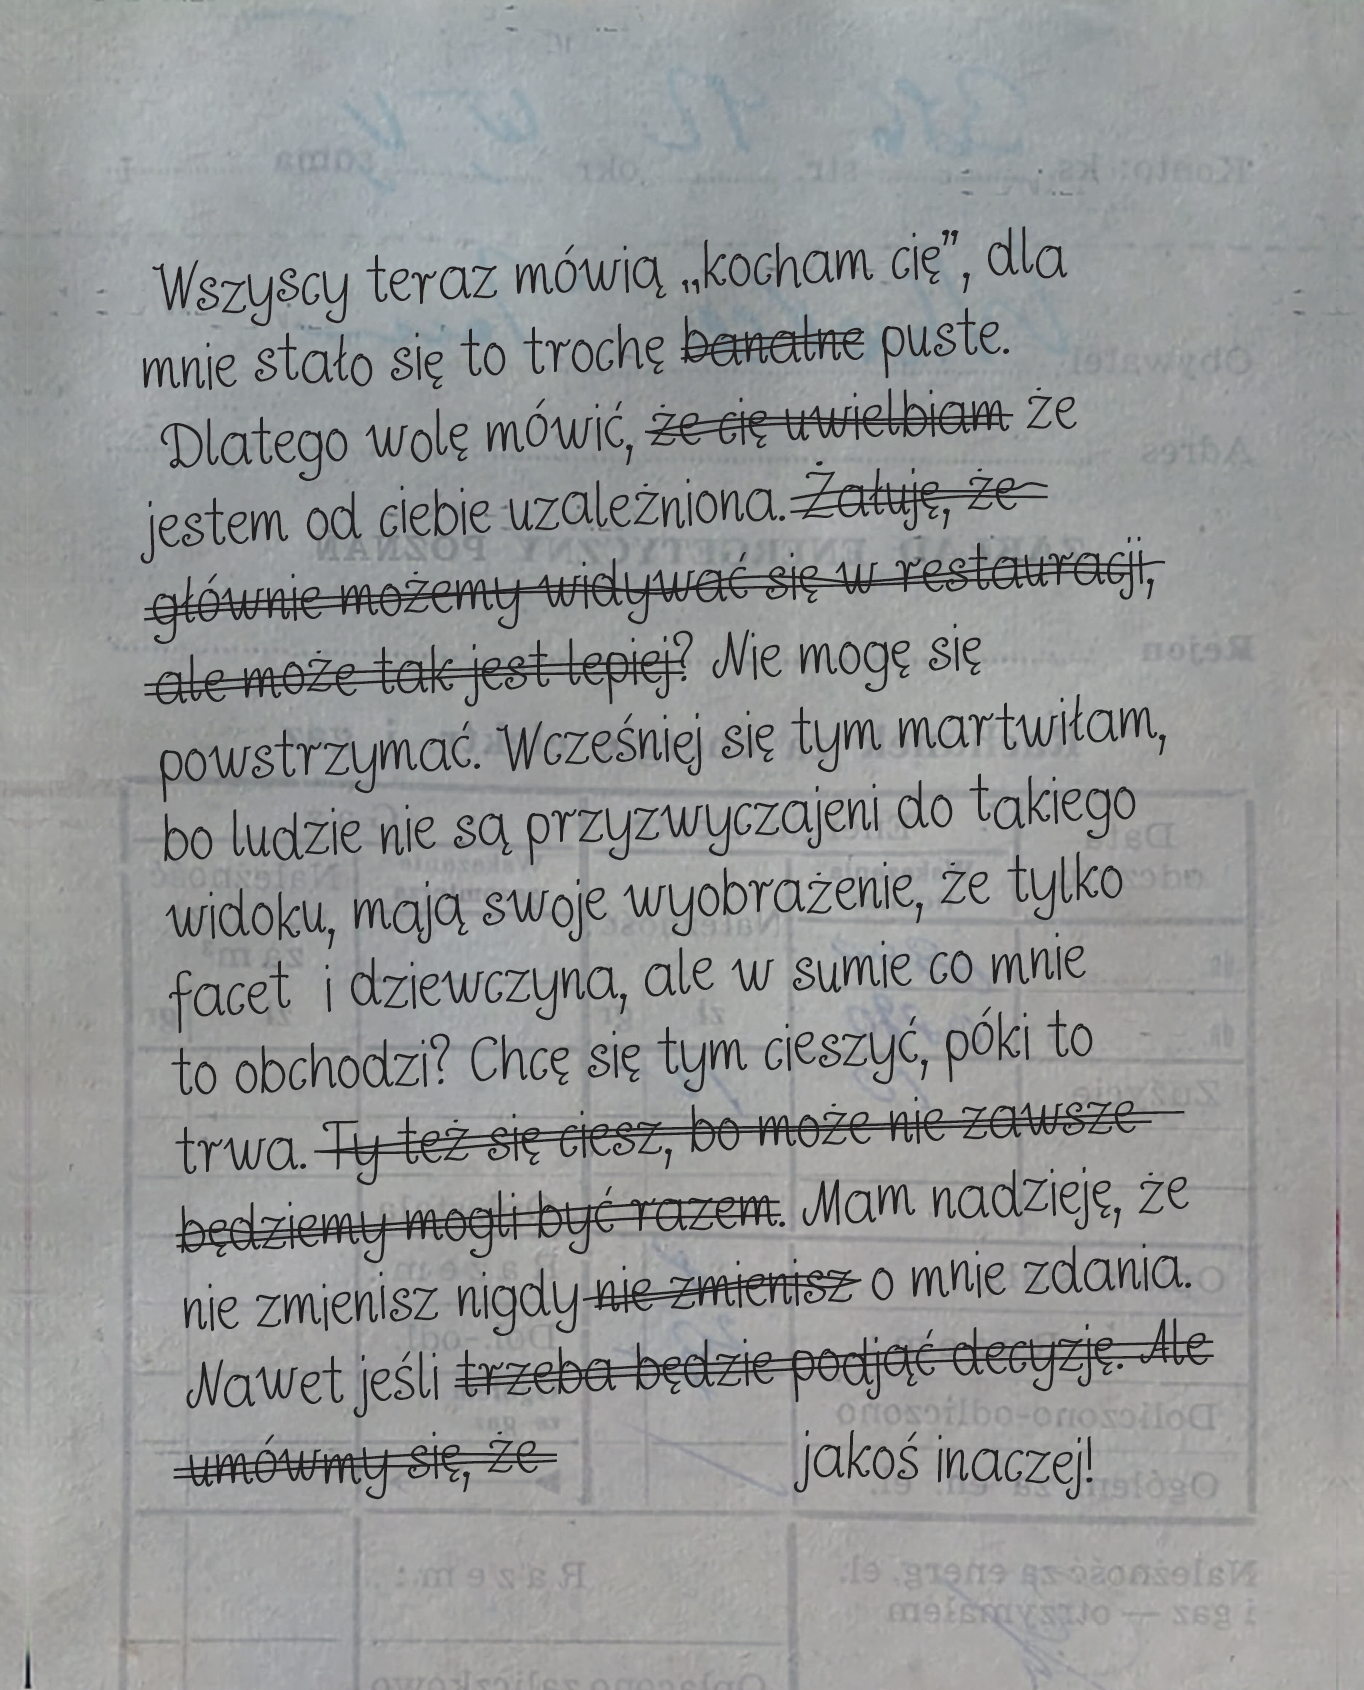 Wszyscy teraz mówią „kocham cię”, dla
mnie stało się to trochę banalne puste.
Dlatego wolę mówić, że cię uwielbiam że
jestem od ciebie uzależniona. Żałuję, że
głównie możemy widywać się w restauracji,
ale może tak jest lepiej? Nie mogę się
powstrzymać. Wcześniej się tym martwiłam,
bo ludzie nie są przyzwyczajeni do takiego
widoku, mają swoje wyobrażenie, że tylko
facet i dziewczyna, ale w sumie co mnie
to obchodzi? Chcę się tym cieszyć, póki to
trwa. Ty też się ciesz, bo może nie zawsze
będziemy mogli być razem. Mam nadzieję, że
nie zmienisz nigdy nie zmienisz o mnie zdania.
Nawet jeśli trzeba będzie podjąć decyzję. Ale
umówmy się, że jakoś inaczej!